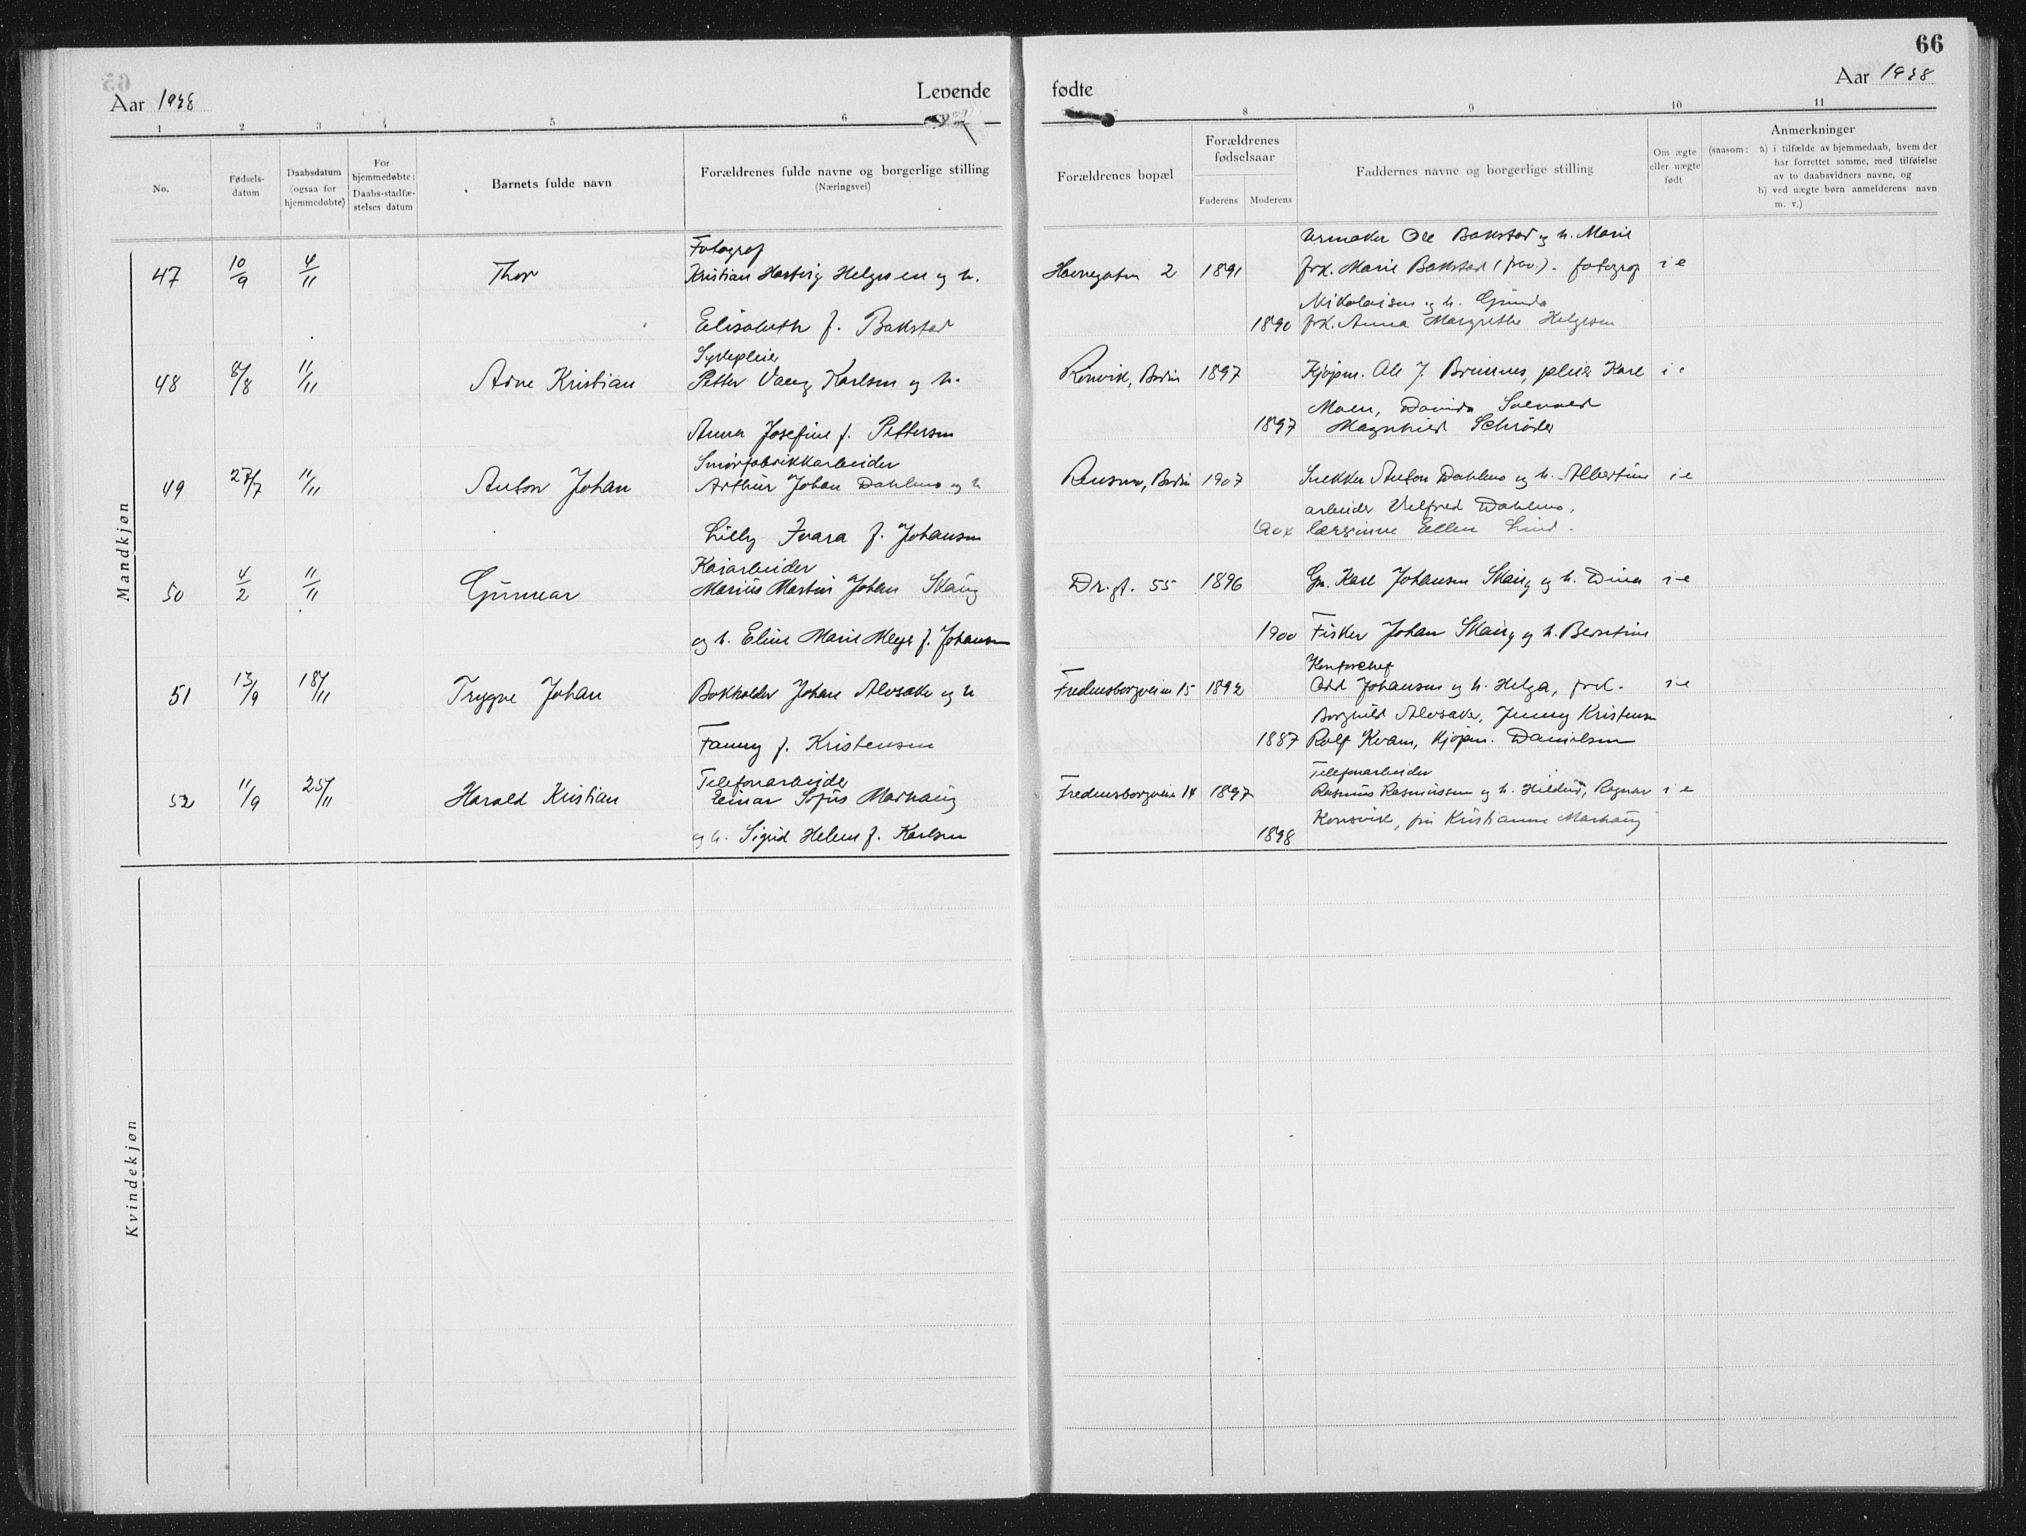 66
Aar 1928
Levende
fødte
Aar 1928
1 2 3 4 5 6 8 9 10 11
No.
Fødsels-
datum
Daabsdatum
(ogsaa for
hjemmedøbte)
For
hjemmedøbte:
Daabs-stadfæ-
stelses datum
Barnets fulde navn
Forældrenes fulde navne og borgerlige stilling
(Næringsvei)
Forældrenes bopæl
Forældrenes
fødselsaar
Faderens
Moderens
Faddernes navne og borgerlige stilling
Om ægte
eller uægte
født
Anmerkninger
(saasom: a) i tilfælde av hjemmedaab, hvem der
har forrettet samme, med tilføielse
av to daabsvidners navne, og
b) ved uægte børn anmelderens navn
m. v.)
Mandkjøn
Fotograf
Urmaker Ole Bakstad og h. Marie
47 10/9 4/11 Thor Kristian Hartvig Helgesen og h. Havnegaten 2 1891 frk. Marie Bakstad (frav.). fotograf i e
Nikolaisen og h. Gunda
Elisabeth f. Bakstad 1890 frk. Anna Margrethe Helgesen
Sykepleier
48 8/8 11/11 Arne Kristian Petter Vang Karlsen og h. Rønvik, Bodin 1897 Kjøpm. Ole J. Brunnes, pleier Karl i e
Moen, Davida Solvold
Anna Josefine f. Pettersen 1897 Magnhild Schrøder
Smørfabrikkarbeider
49 27/7 11/11 Anton Johan Arthur Johan Dahlmo og h Bodin 1907 Snekker Anton Dahlmo og h. Albertine i e
arbeider Vilfred Dahlmo,
Lilly Ivara f. Johansen lærerinne Ellen Lind.
Kaiarbeider
50 4/2 11/11 Gunnar Marius Martin Johan Skaug Dr.gt. 55 1896 Gn. Karl Johansen Skaug og h. Dina i e
og h. Eline Marie Meyer f. Johansen 1900 Fisker Johan Skaug og h. Berntine
Kontorchef
51 13/9 18/11 Trygve Johan Bokholder Johan Alvsaker og h Fredensborgveien 15 1892 Odd Johansen og h. Helga, frk. i e
Borghild Alvsaker, Jenny Kristensen
Fanny f. Kristensen 1887 Rolf Kvam, kjøpm. Danielsen
Telefonarbeider
Telefonarbeider
52 11/9 25/11 Harald Kristian Einar Sofus Marhaug Fredensborgveien 14 1897 Rasmus Rasmussen og h. Hildur, Ragnar i e
Korsvik, fru Kristianne Marhaug
og h. Sigrid Helene f. Karlsen 1898
Kvindekjøn